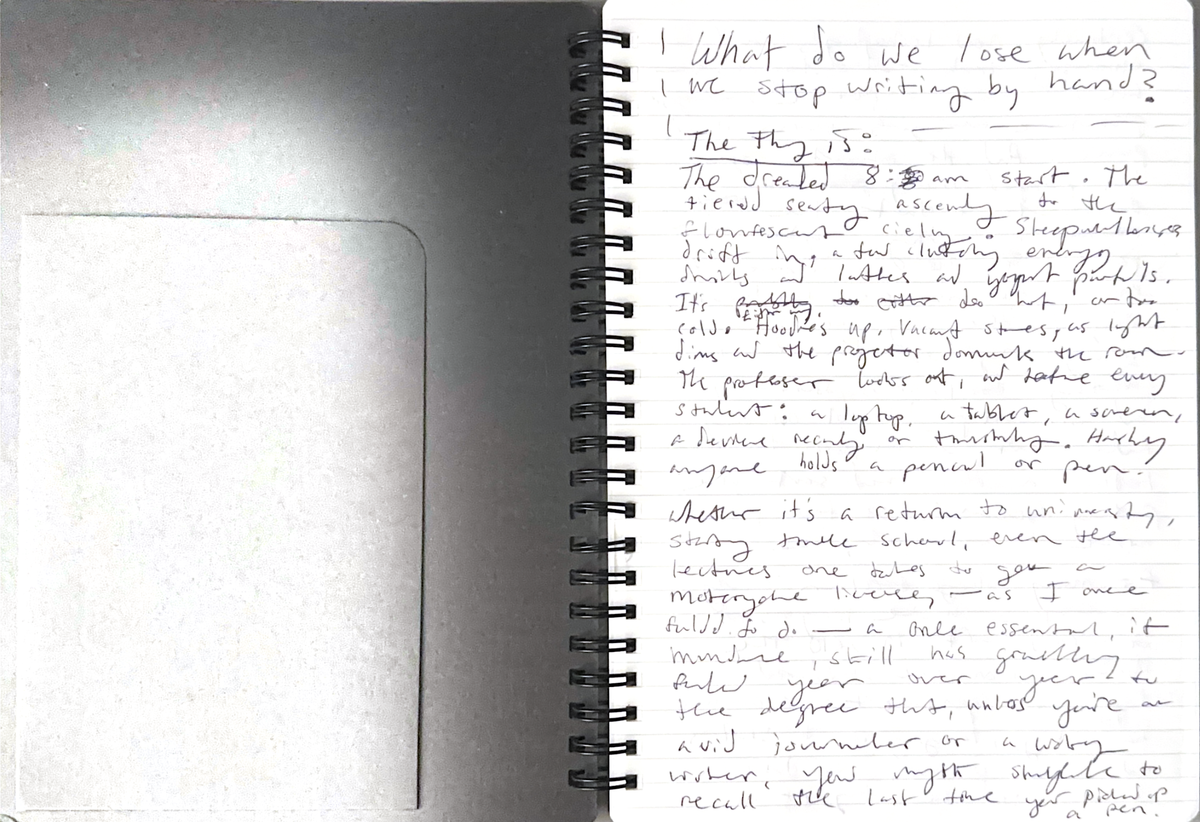 What do we lose when
we stop writing by hand?
The Thing is:
The dreaded 8: am start. The
tiered seating ascending to the
drift in, a few clutching energy
drinks and lattes and yogurt parfaits.
It's too hot, or too
cold. Hoodies up. Vacant stares, as light
dims and the projector dominates the room.
The professor looks out, and before every
student: a laptop, a tablet, a screen,
a device recording or transcribing. Hardly
anyone holds a pencil or pen.
Whether it's a return to university,
starting trade school, even the
lectures one takes to get a
motorcycle license, — as I once
failed to do — a once essential, if
mundane, skill has gradually
faded year over year to
the degree that, unless you're an
avid journaler or a working
writer, you might struggle to
recall the last time you picked up
a pen.